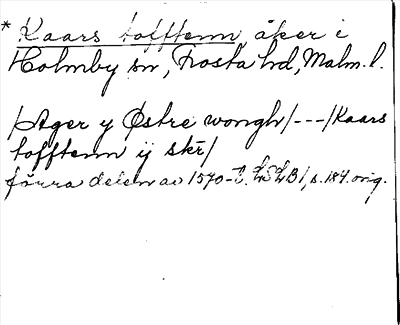 * Kaars tofftenn åker i
Holmby sn, Frosta hd, Malm. l.
/Ager y Østre wongh/---/Kaars
tofftenn ij skr/
förra delen av 1570-t. LSLB 1, s. 184. orig.